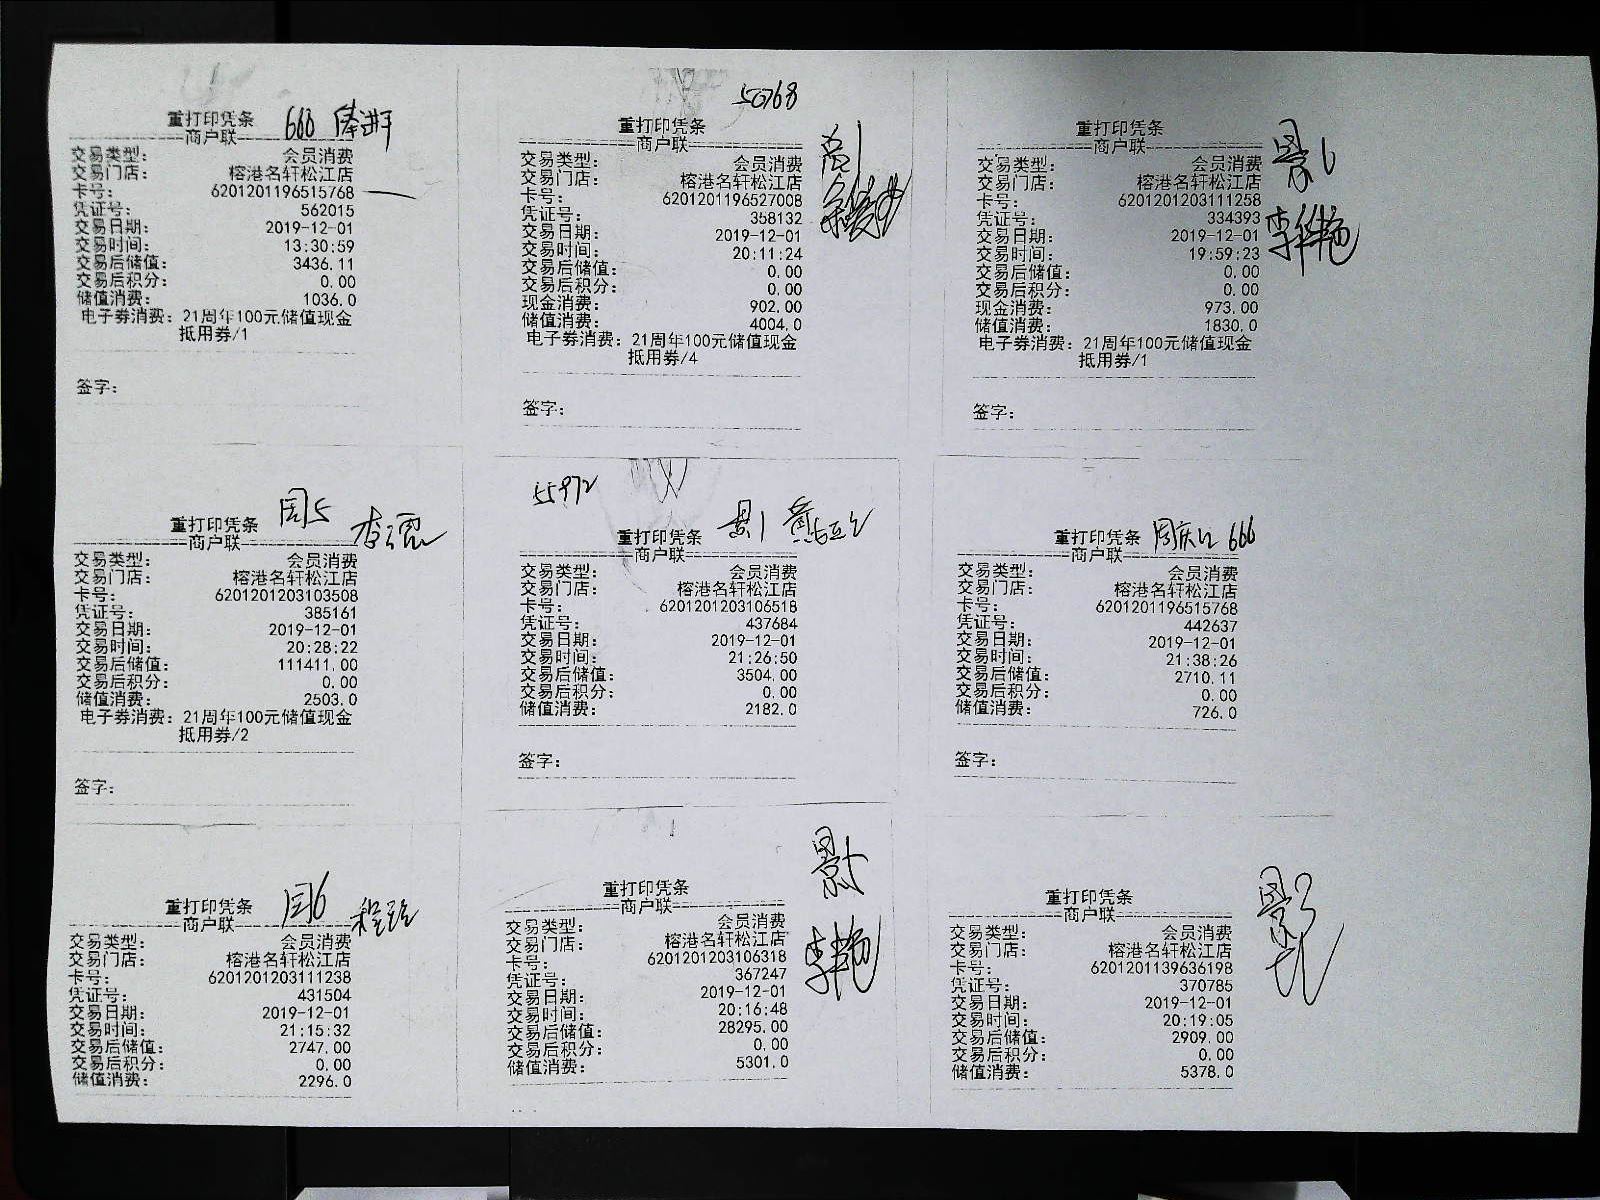 重打印凭条 668
商户联
交易类型: 会员消费
交易门店: 榕港名轩松江店
卡号: 6201201196515768
凭证号: 562015
交易日期: 2019-12-01
交易时间: 13:30:59
交易后储值: 3436.11
交易后积分: 0.00
储值消费: 1036.0
电子券消费: 21周年100元储值现金
抵用券/1
签字:
50768
重打印凭条
商户联
交易类型: 会员消费
交易门店: 榕港名轩松江店
卡号: 6201201196527008
凭证号: 358132
交易日期: 2019-12-01
交易时间: 20:11:24
交易后储值: 0.00
交易后积分: 0.00
现金消费: 902.00
储值消费: 4004.0
电子券消费: 21周年100元储值现金
抵用券/4
签字:
重打印凭条
商户联
交易类型: 会员消费
交易门店: 榕港名轩松江店
卡号: 6201201203111258
凭证号: 334393
交易日期: 2019-12-01
交易时间: 19:59:23
交易后储值: 0.00
交易后积分: 0.00
现金消费: 973.00
储值消费: 1830.0
电子券消费: 21周年100元储值现金
抵用券/1
签字:
重打印凭条 周5
商户联
交易类型: 会员消费
交易门店: 榕港名轩松江店
卡号: 6201201203103508
凭证号: 385161
交易日期: 2019-12-01
交易时间: 20:28:22
交易后储值: 111411.00
交易后积分: 0.00
储值消费: 2503.0
电子券消费: 21周年100元储值现金
抵用券/2
签字:
55972
重打印凭条
商户联
交易类型: 会员消费
交易门店: 榕港名轩松江店
卡号: 6201201203106518
凭证号: 437684
交易日期: 2019-12-01
交易时间: 21:26:50
交易后储值: 3504.00
交易后积分: 0.00
储值消费: 2182.0
签字:
重打印凭条 666
商户联
交易类型: 会员消费
交易门店: 榕港名轩松江店
卡号: 6201201196515768
凭证号: 442637
交易日期: 2019-12-01
交易时间: 21:38:26
交易后储值: 2710.11
交易后积分: 0.00
储值消费: 726.0
签字:
重打印凭条 周6
商户联
交易类型: 会员消费
交易门店: 榕港名轩松江店
卡号: 6201201203111238
凭证号: 431504
交易日期: 2019-12-01
交易时间: 21:15:32
交易后储值: 2747.00
交易后积分: 0.00
储值消费: 2296.0
重打印凭条
商户联
交易类型: 会员消费
交易门店: 榕港名轩松江店
卡号: 6201201203106318
凭证号: 367247
交易日期: 2019-12-01
交易时间: 20:16:48
交易后储值: 28295.00
交易后积分: 0.00
储值消费: 5301.0
重打印凭条
商户联
交易类型: 会员消费
交易门店: 榕港名轩松江店
卡号: 6201201139636198
凭证号: 370785
交易日期: 2019-12-01
交易时间: 20:19:05
交易后储值: 2909.00
交易后积分: 0.00
储值消费: 5378.0